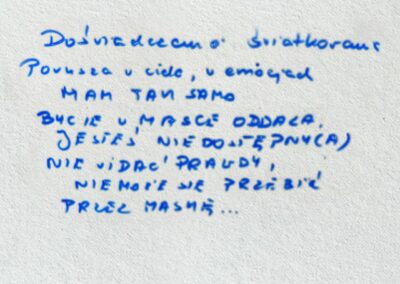 Doświadczam o świadkowanie
Porusza w ciele, w emocjach
MAM TAK SAMO
BYCIE W MASCE ODDALA,
JESTEŚ NIEDOSTĘPNY(A)
NIE WIDAĆ PRAWDY,
NIE MOŻE SIĘ PRZEBIĆ
PRZEZ MASKĘ...